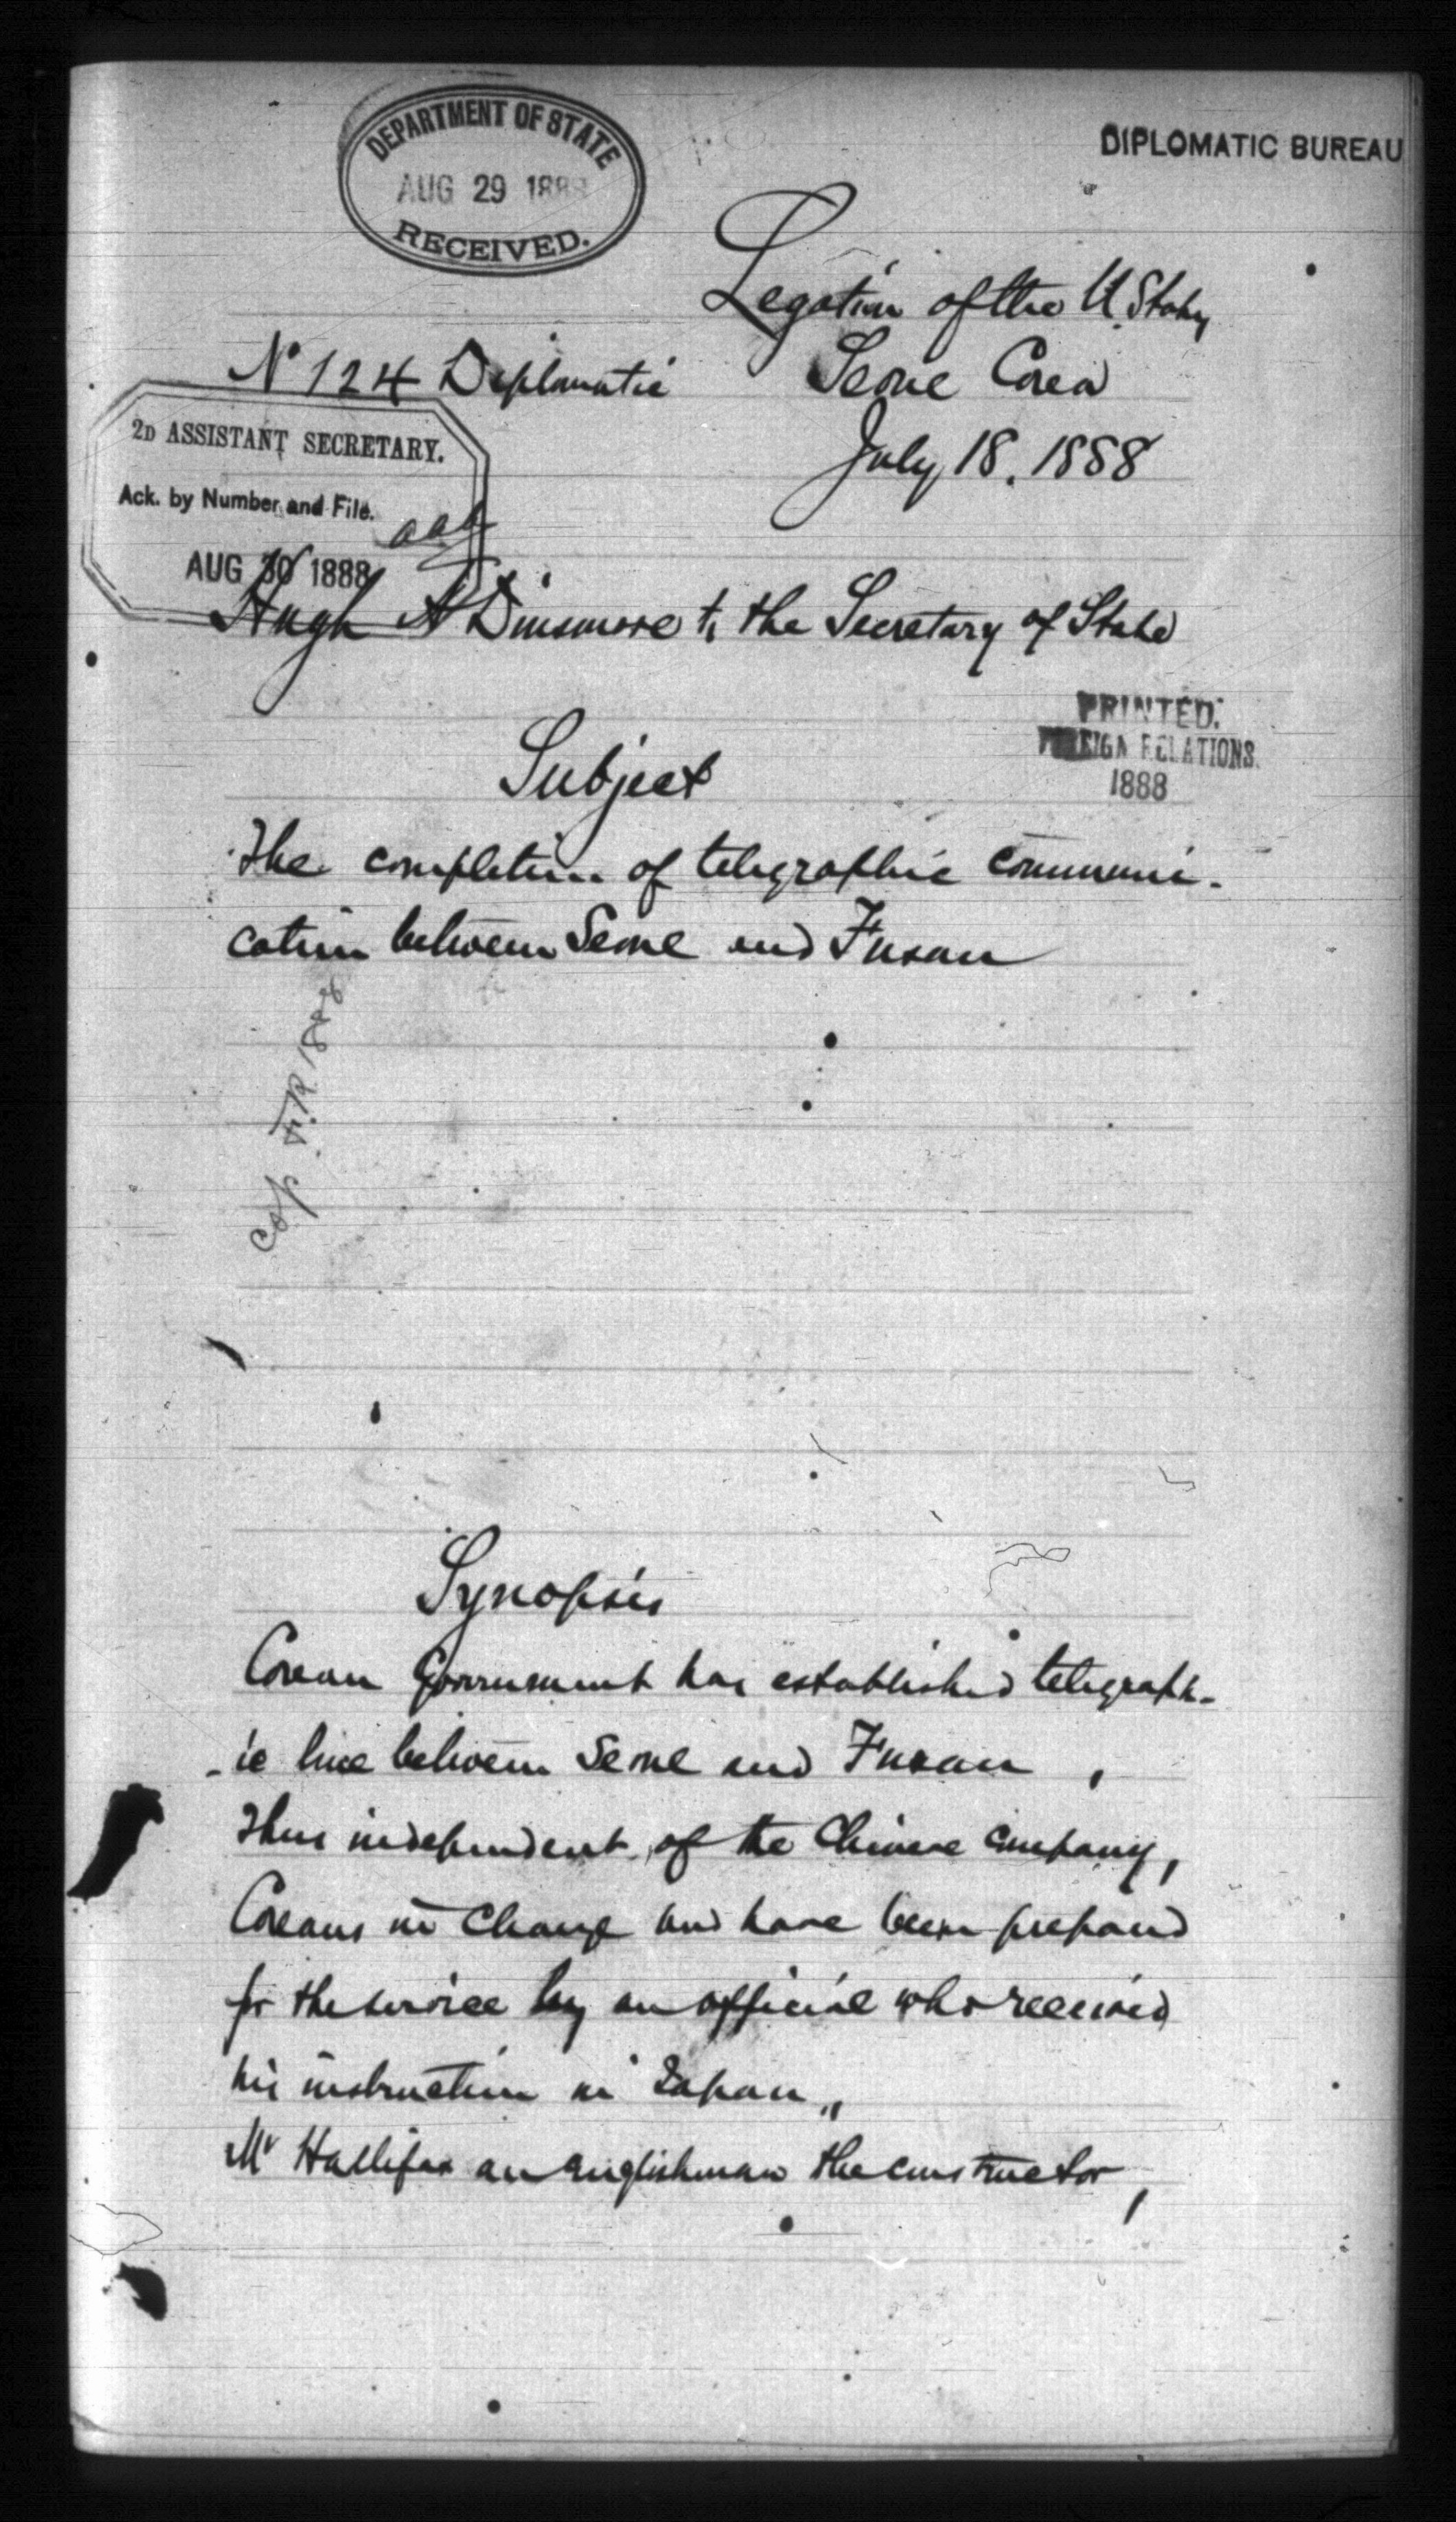 DEPARTMENT OF STATE
AUG 29 1888
RECEIVED.
DIPLOMATIC BUREAU
Legation of the U. States
Seoul Corea
No 124 Diplomatic
July 18. 1888
2D ASSISTANT SECRETARY.
Ack. by Number and File.
aaa
AUG 30 1888
Hugh A Dinsmore to the Secretary of State
PRINTED.
FOREIGN RELATIONS.
1888
Subject
The completion of telegraphic communi-
cation between Seoul and Fusan
cop. F.R 1888
Synopsis
Corean Government has established telegraph-
-ic line between Seoul and Fusan,
Thus independent of the Chinese Company,
Coreans in Charge and have been prepared
for the service by an official who received
his instruction in Japan,,
Mr Hallifax an Englishman the constructor,